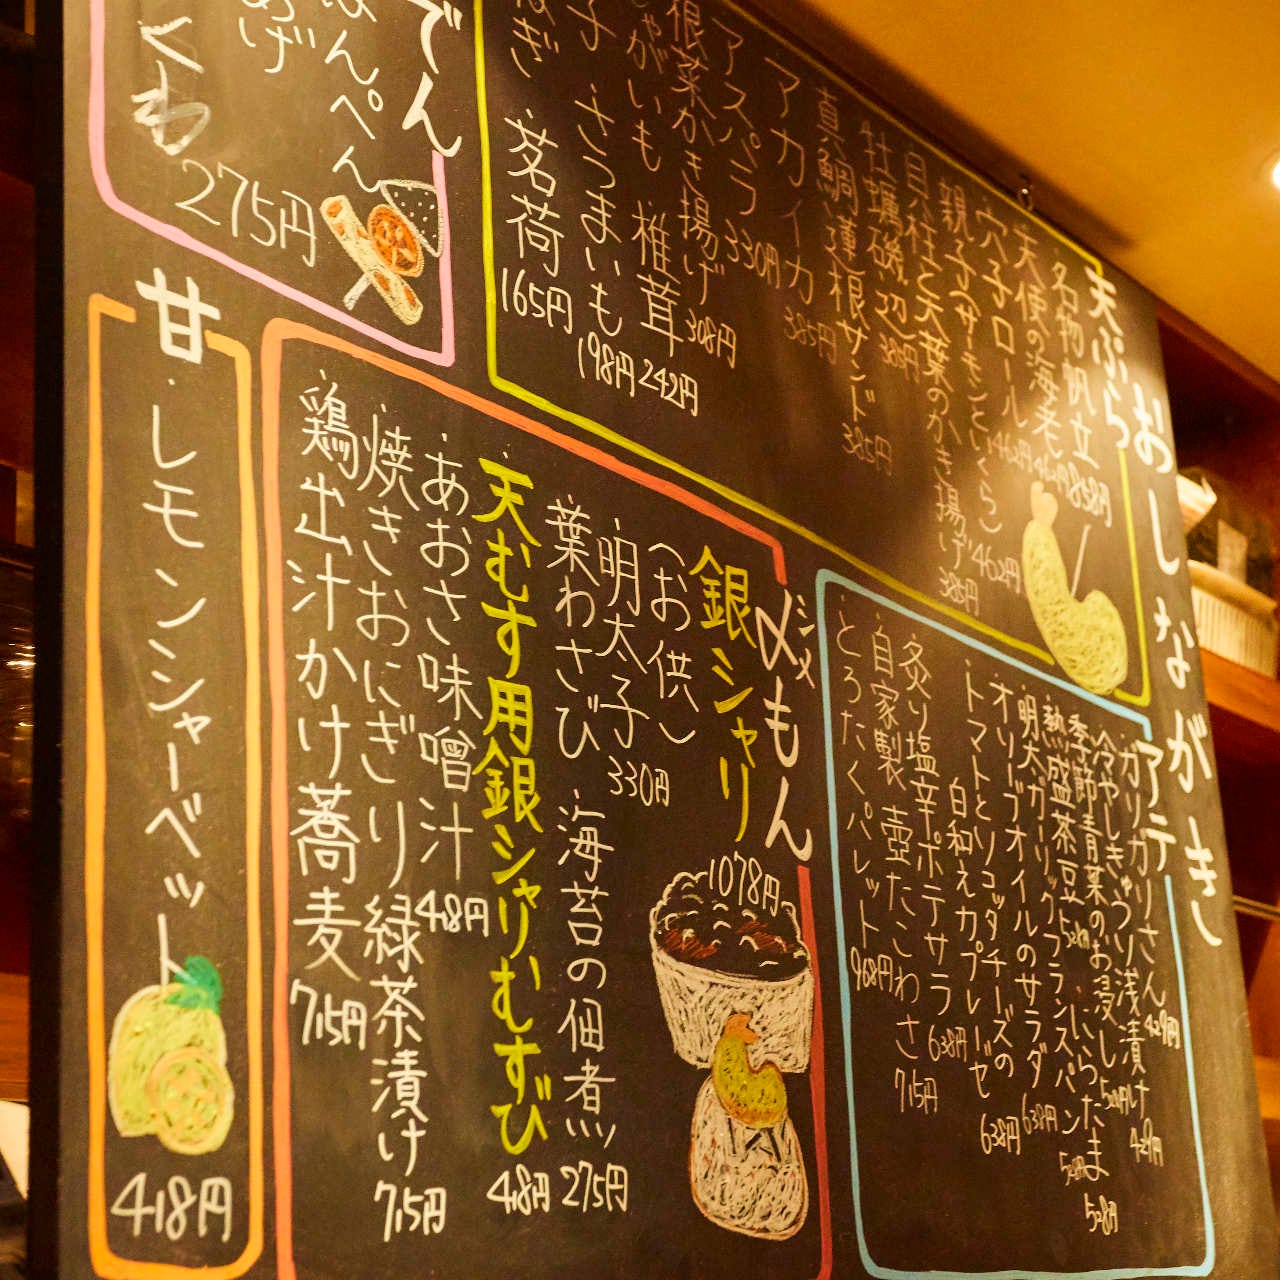 おしながき
天ぷら
名物 帆立 858円
天使の海老 462円
穴子ロール 462円
親子(サーモンといくら) 462円
貝柱と天葉のかき揚げ 385円
牡蠣磯辺 385円
真鯛蓮根サンド 385円
アカイカ 385円
アスパラ 330円
根菜かき揚げ 308円
じゃがいも 椎茸 242円
さつまいも 198円
茗荷 165円
でん
はんぺん
あげ
くわ
275円
アテ
ガリガリさん 429円
冷やしきゅうり浅漬け 429円
季節青菜のお浸し 528円
熱盛茶豆 528円 にらたま 528円
明太ガーリックフランスパン 528円
オリーブオイルのサラダ 638円
トマトとリコッタチーズの
白和えカプレーゼ 638円
炙り塩辛ポテサラ 638円
自家製 壺たこわさ 715円
とろたくパレット 968円
〆もん
シメ
銀シャリ 1078円
(お供し
明太子 330円
葉わさび 海苔の佃煮 275円
天むす用銀シャリむすび 418円
あおさ味噌汁 418円
焼きおにぎり緑茶漬け 715円
鶏出汁かけ蕎麦 715円
甘
・レモンシャーベット
418円